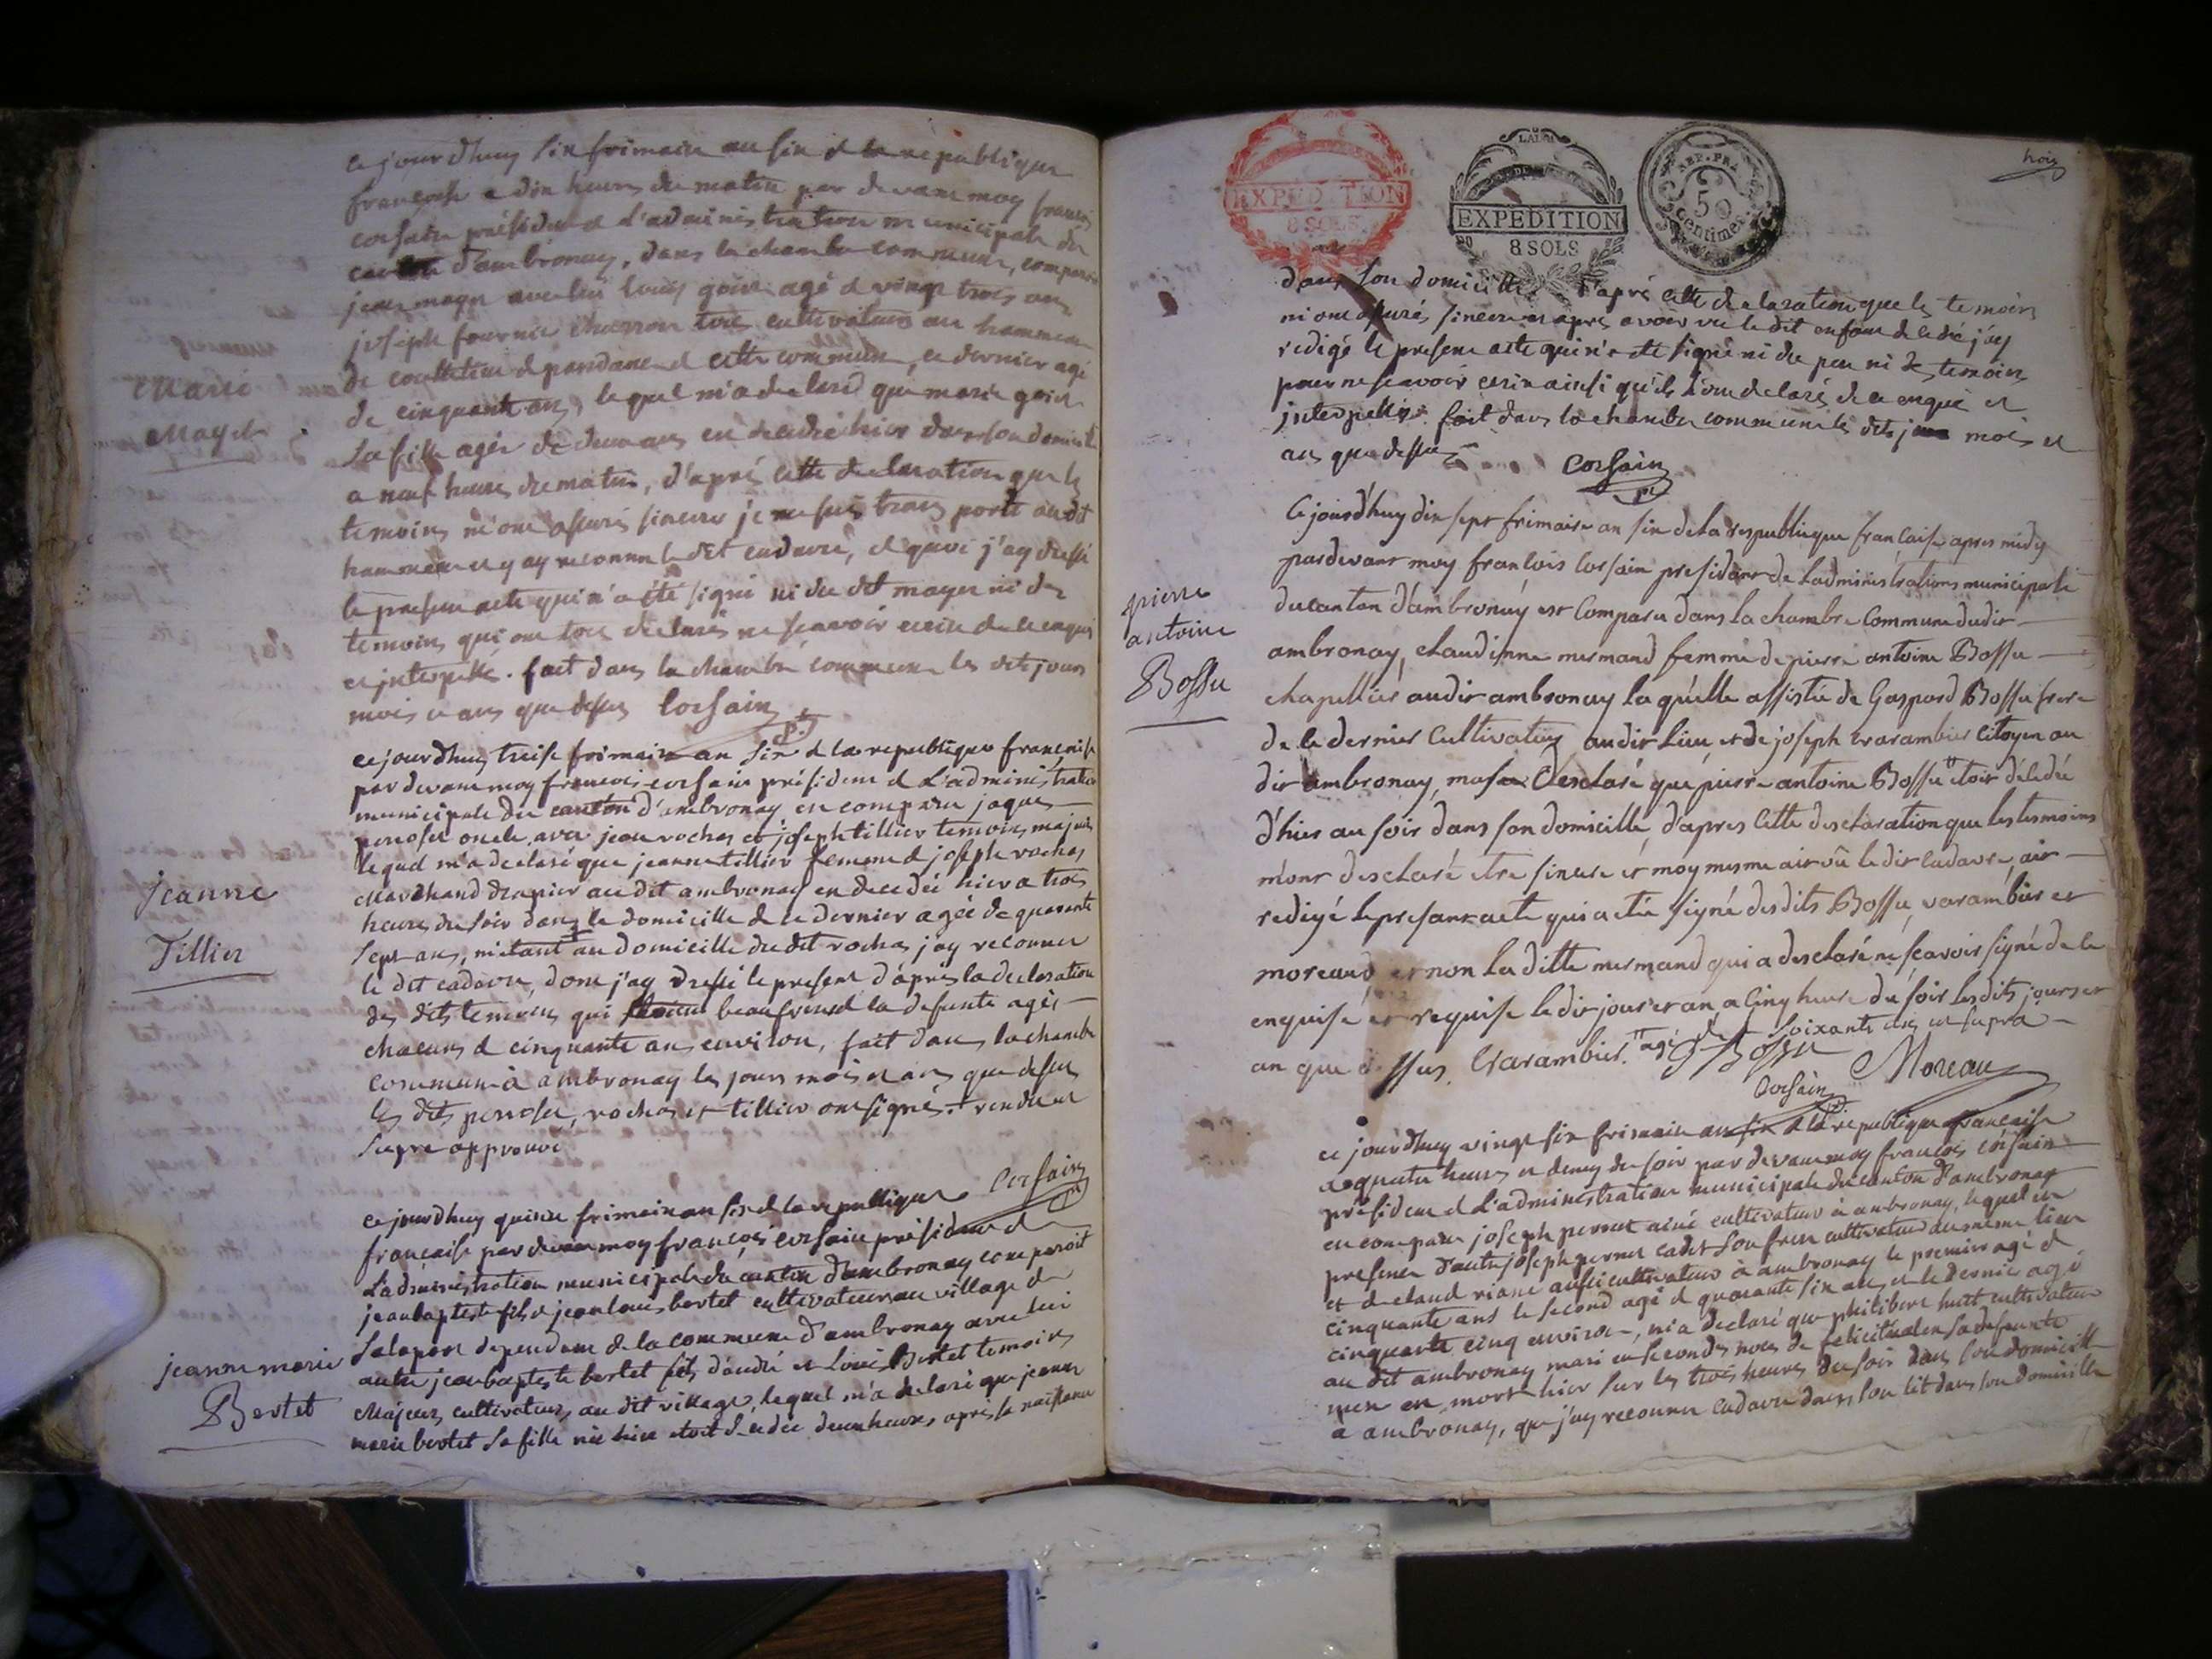 ce jourdhuy six frimaire an six d la republique
françoise a dix heures du matin par devant moy françois
corsain président d l'administration municipale du
canton d'ambronay, dans la chambe commune, comparu
jean mayer avec lui louis goive agé d vingt trois ans
joseph fournier charron tous cultivateurs au hammeau
de dependant d cette commune, ce dernier agé
de cinquante ans, lequel m'a declaré que marie
sa fille agée de deux ans est decedée hier dans son domicile
a neuf heures du matin, d'aprés cette declaration que les
temoins m'ont assurés sincere je me suis trans porté audit
hammeau et y ay reconnu le dit cadavre, d quoi j'ay dressé
le present acte qui n'a été signé ni du dit mayer ni des
temoins qui ont tous declarés ne sçavoir ecrire de ce enquis
et interpellés. fait dans la chambre commune les dits jours
mois et ans que dessus Corsain
Marie
Mayet
ce jourdhuy treise frimaire an six d la republique françoise
par devant moy francois corsain président d L'administration
municipale du canton d'ambronay est comparu jaques
perroset oncle, avec jean rochas et joseph tillier temoins majeurs
lequel m'a declaré que jeanne tillier femme d joseph rochas
Marchand drapier au dit ambronay est decedée hier a trois
heures du soir dans le domicille de ce dernier agée de quarante
sept ans, m'etant au domicille du dit rochas jay reconnu
le dit cadavre, dont j'ay dressé le present d'aprés la declaration
des dits temoins qui beaufrerés d la defunte agés
chacuns d cinquante ans environ, fait dans la chambre
commune à ambronay les jours mois et ans que dessus
les dits perroset, rochas et tillier ont signé. + rendu
supra approuvé
Corsain
Jeanne
Tillier
ce jourdhuy quinze frimaire an six d la republique
francaise par devant moy françois corsain président d
L'administration municipale du canton d'ambronay comparoit
jean baptiste fils d jean louis bertet cultivateur au village d
Salaport dependant de la commune d'ambronay avec lui
autre jean baptiste bertet fils d'andré et Louis Bertet temoins
Majeurs cultivateurs au dit village, lequel m'a declaré que jeanne
marie bertet sa fille née hier etoit decedée deux heures apres sa naissance
jeanne marie
Bertet
trois
EXPEDITION
8 SOLS
EXPEDITION
8 SOLS
50
Centimes
dans son domicille. D'aprés cette declaration que les temoins
m'ont assurés sincere et apres avoir vu le dit enfant decedé j'ay
redigé le present acte qui n'a eté signé ni du pere ni des temoins
pour ne sçavoir ecrire ainsi qu'ils l'ont declarés de ce enquis et
interpellés. fait dans la chambre commune les dits jours mois et
ans que dessus
Corsain
Ce jourd'huy dix sept frimaire an six de la respublieque française apres midy
pardevant moy françois Corsain presidant de Ladministrations municipale
du canton d'ambronay est Comparu dans la chambre Commune dudit
ambronay, claudinne mermand femme de pierre antoine Bossu
chapellier audit ambronay la quélle assistée de Gaspard Bossu frere
de ce dernier Cultivateur audit Lieu et de joseph varambier Citoyen au
dit ambronay, ma Desclaré que pierre antoine Bossu etoit décédé
d'hier au soir dans son domicille, d'apres Cette desclaration que les tesmoins
m'ont desclaré etre sincere et moy mesme ait vû le dit cadavre, ait
redigé le presant acte qui a etée signé desdits Bossu, varambier et
moreaud et non La ditte mermand qui a desclaré ne sçavoir signé de ce
enquise et requise le dit jour et an, a Cinq heure du soir lesdits jours et
an que dessus. Varambier. agé de soixante dix ut supra
G Bossu Moreau
Corsain
pierre
antoine
Bossu
ce jourdhuy vingt six frimaire an six d la republique francaise
a quatre heures et demy du soir par devant moy francois corsain
président d L'administration municipale du canton d'ambronay
est comparu joseph perret ainé cultivateur à ambronay, lequel en
presence d'autre joseph perret cadet son frere cultivateur du meme lieu
et de claud riane aussi cultivateur à ambronay le premier agé d
cinquante ans le second agé d quarante six ans, et le dernier agé
cinquante cinq environ, m'a declaré que philibert huit cultivateur
au dit ambronay mari en secondes noces de sa defunte
est mort hier sur les trois heures du soir dans son domicille
à ambronay, que j'ay reconnu cadavre dans son lit dans son domicille